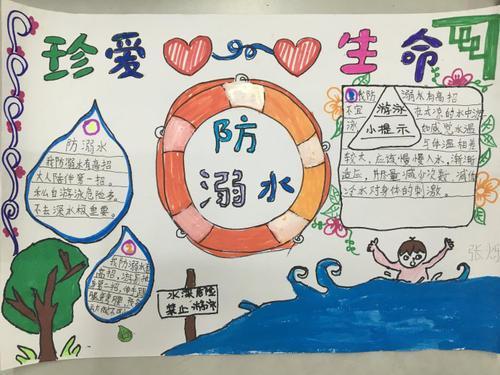 珍爱
生命
防
溺水
防溺水
我防溺水有高招
大人陪伴第一招。
私自游泳危险多。
不去深水极重要。
我防溺水有
高招。
我防
溺水有高招
不宜
游泳
小提示
在太凉的水中游
泳
如感觉水温
与体温相差
较大，应该慢慢入水，渐渐
适应，尽量减少次数，减低
冷水对身体的刺激。
水深危险
禁止游泳
张烁